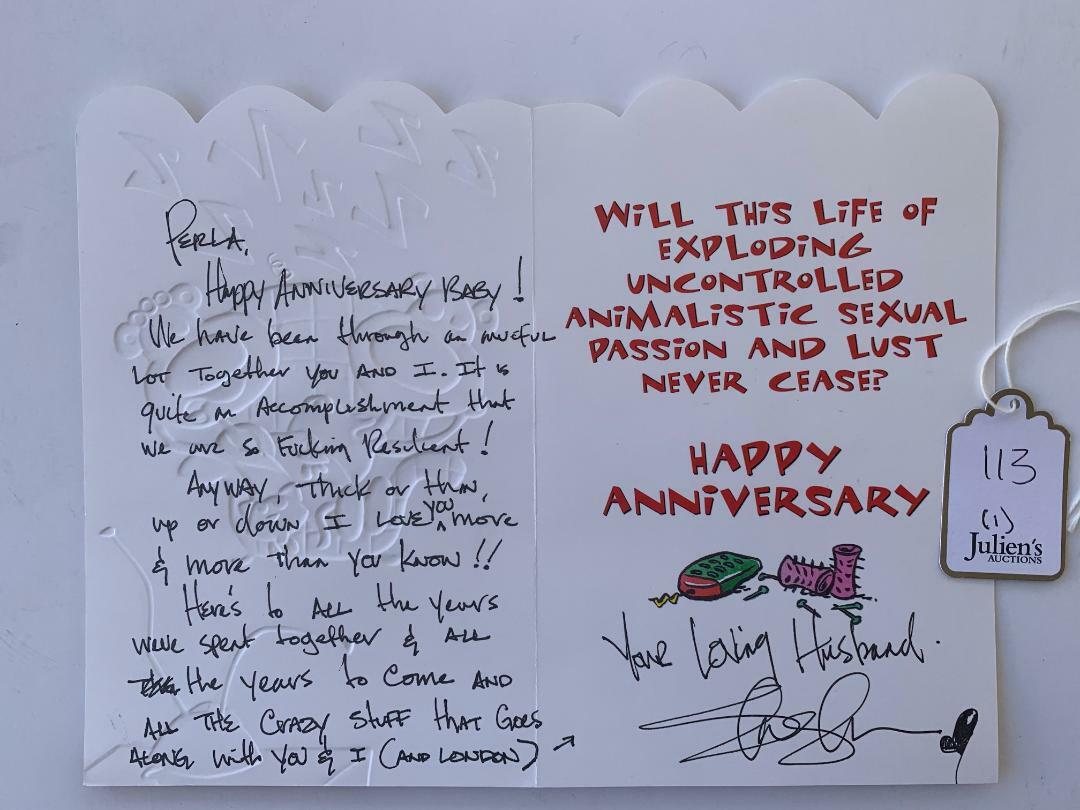 Perla,
Happy Anniversary Baby!
We have been through an aweful
lot together you and I. It is
quite an accomplishment that
we are so Fucking Resilient!
Anyway, thick or thin,
up or down I love you more
& more than you know!!
Here's to all the years
weve spent together & all
the years to come and
all the crazy stuff that goes
along with you & I (and London) →
WiLL THiS LiFE OF
EXPLODiNG
UNCONTROLLED
ANiMALiSTiC SEXUAL
PASSiON AND LUST
NEVER CEASE?
HAPPY
ANNiVERSARY
Your Loving Husband.
113
(1)
Julien's
AUCTIONS